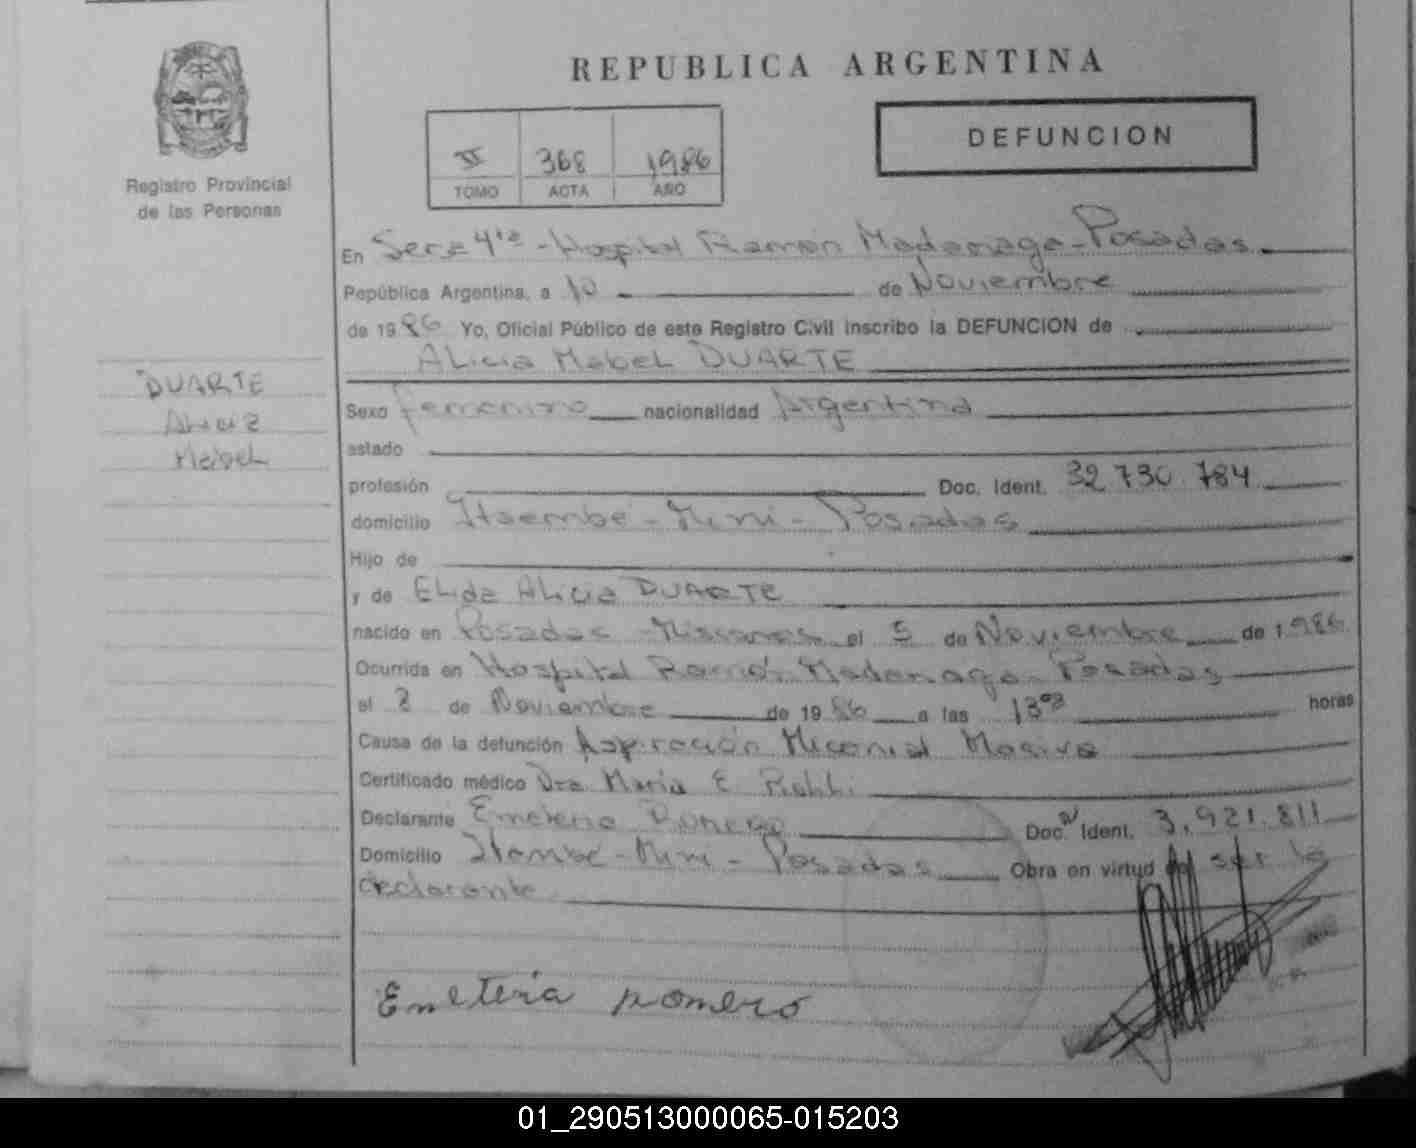 REPUBLICA ARGENTINA
DEFUNCION
II 368 1986
TOMO ACTA AÑO
Registro Provincial
de las Personas
DUARTE
Alicia
Mabel
En Secc 4ta - Hospital Ramón Madariaga - Posadas
República Argentina, a 10 de Noviembre
de 1986 Yo, Oficial Público de este Registro Civil inscribo la DEFUNCION de
Alicia Mabel DUARTE
Sexo femenino nacionalidad Argentina
estado
profesión Doc. Ident. 32.730.784
domicilio Itaembé - Miní - Posadas
Hijo de
y de Elida Alicia DUARTE
nacido en Posadas - Misiones el 5 de Noviembre de 1986
Ocurrida en Hospital Ramón Madariaga - Posadas
el 8 de Noviembre de 1986 a las 13 horas
Causa de la defunción Aspiración Miconial Masiva
Certificado médico Dra María E
Declarante Emeteria Romero Doc. Ident. 3.921.811
Domicilio Itaembé - Miní - Posadas Obra en virtud de ser la
declarante
Emeteria Romero
01_290513000065-015203